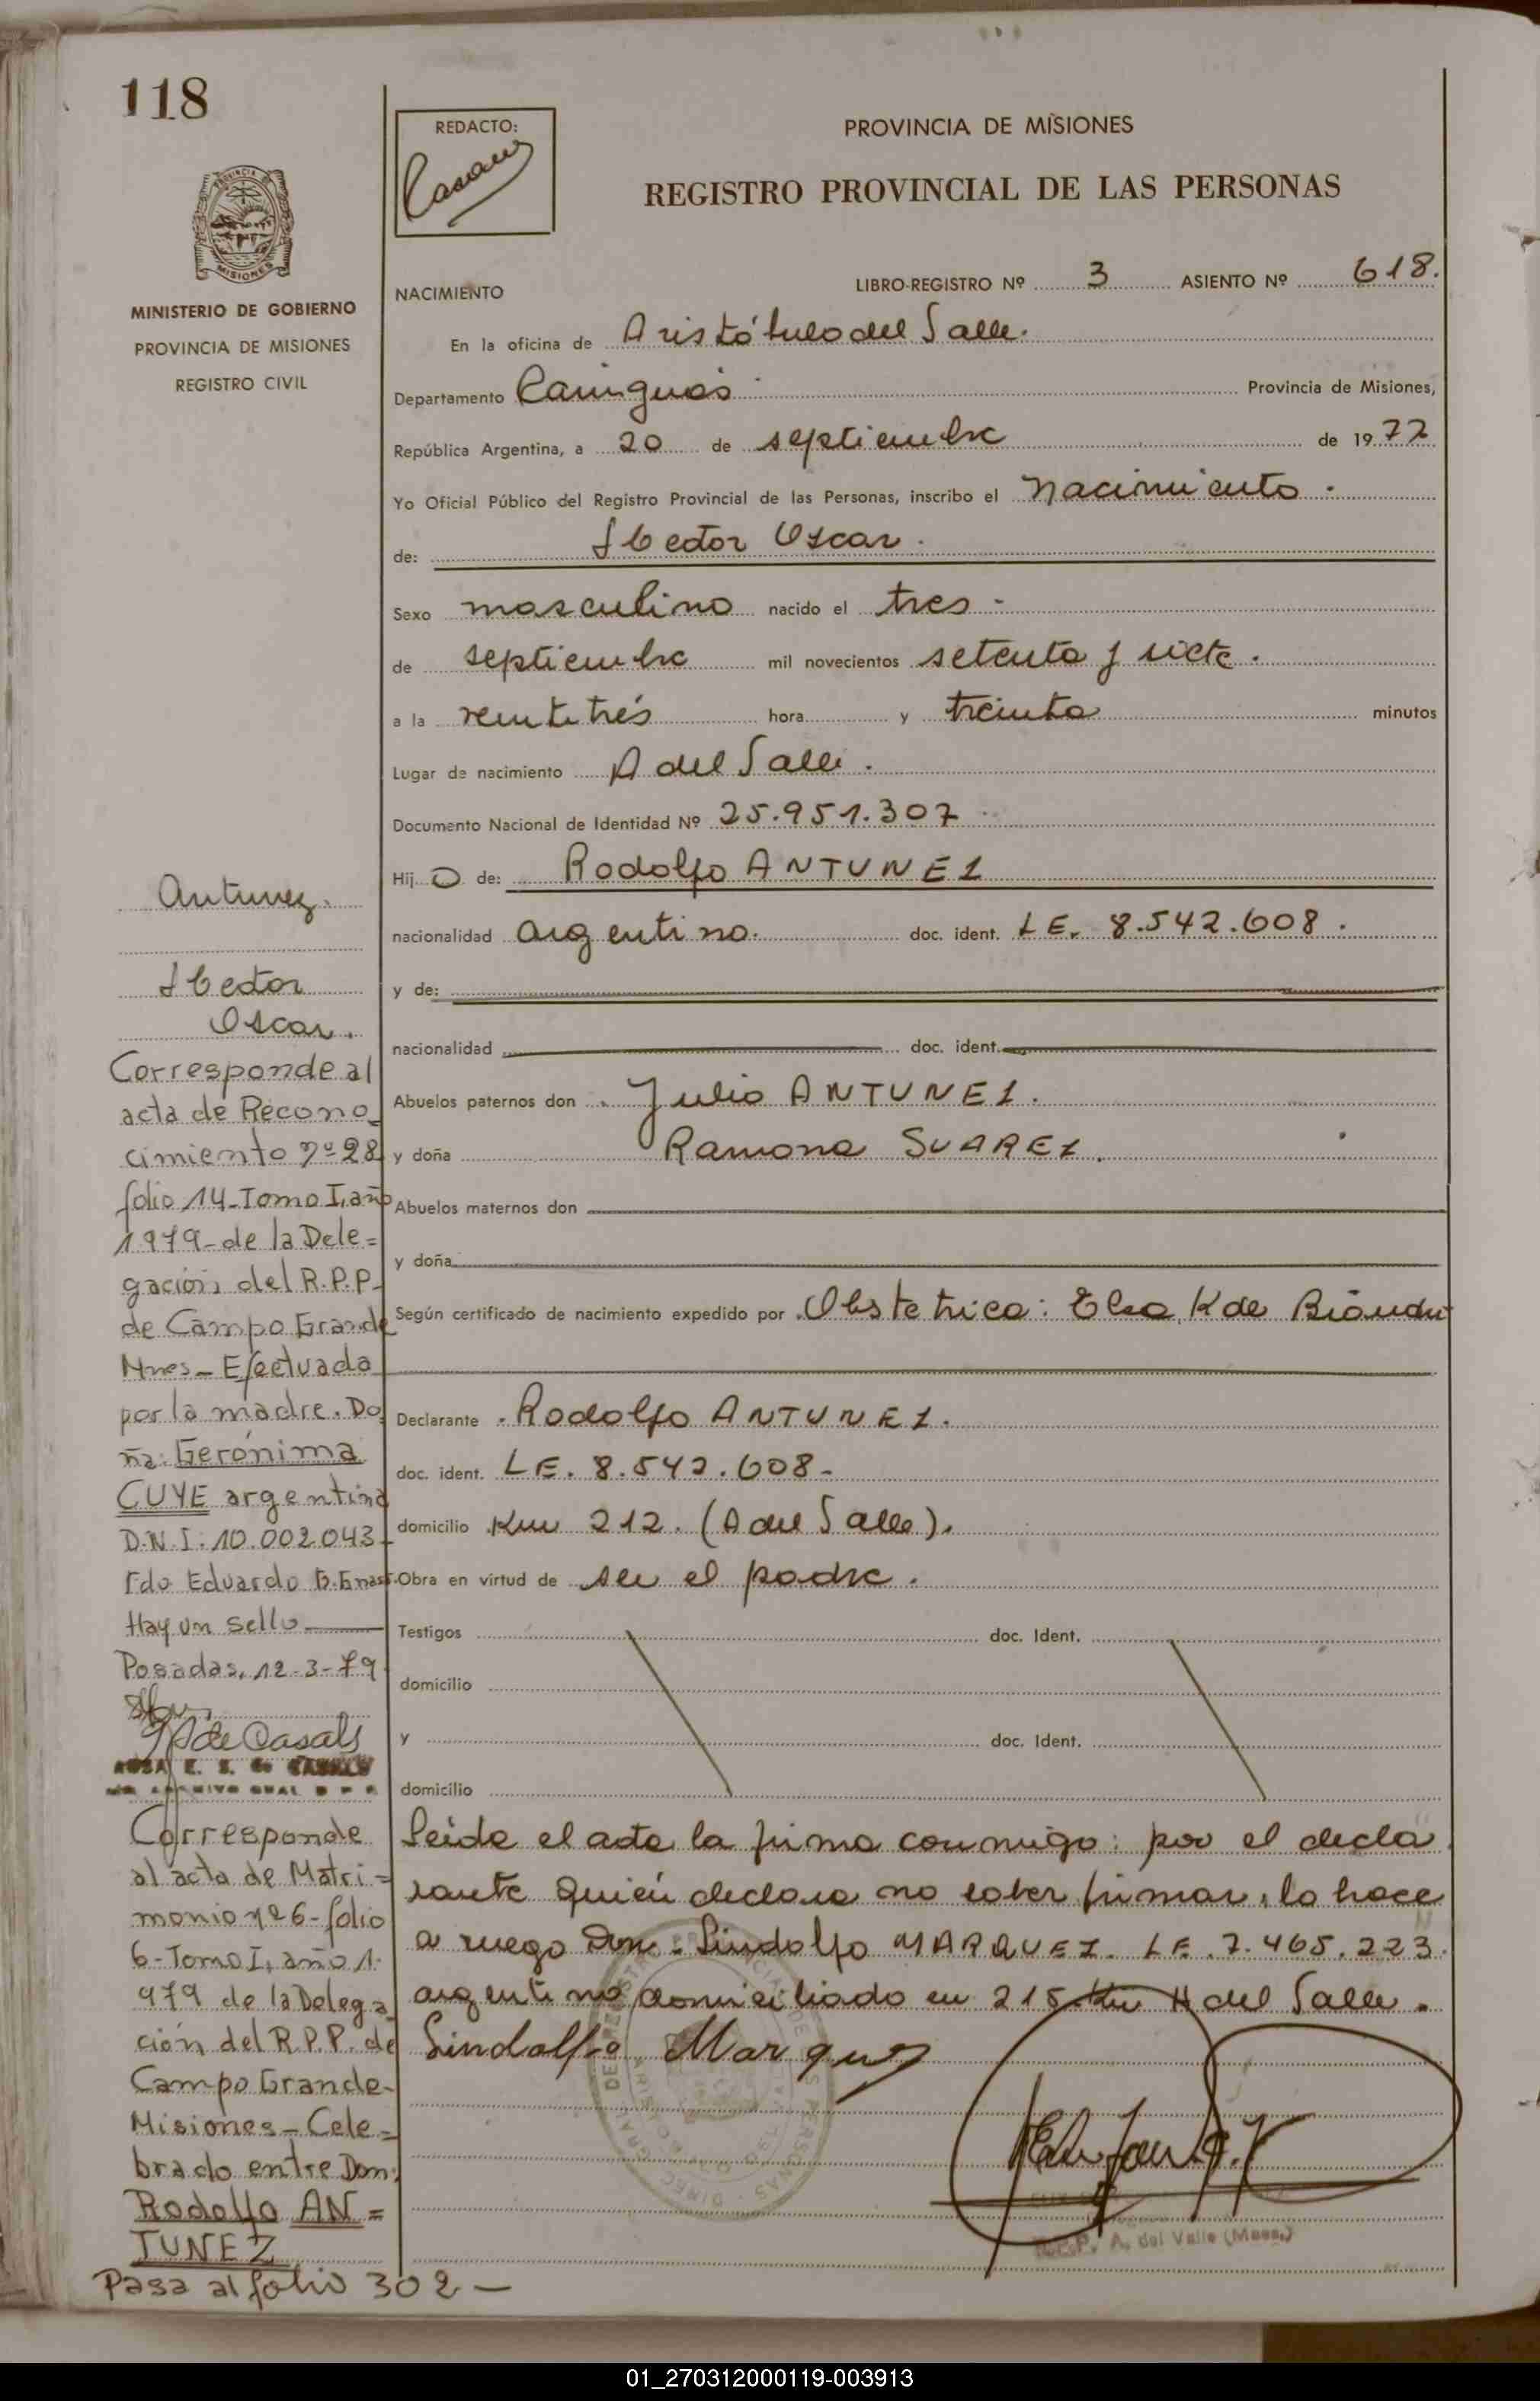 118
REDACTO:
Casals
PROVINCIA DE MISIONES
REGISTRO PROVINCIAL DE LAS PERSONAS
PROVINCIA DE
MISIONES
MINISTERIO DE GOBIERNO
PROVINCIA DE MISIONES
REGISTRO CIVIL
NACIMIENTO
LIBRO-REGISTRO Nº 3 ASIENTO Nº 618.
En la oficina de Aristóbulo del Valle.
Departamento Cainguás Provincia de Misiones,
República Argentina, a 20 de septiembre de 1977
Yo Oficial Público del Registro Provincial de las Personas, inscribo el nacimiento.
de: Hector Oscar.
Sexo masculino nacido el tres -
de septiembre mil novecientos setenta y siete.
a la veintitrés hora y treinta minutos
Lugar de nacimiento A del Valle.
Documento Nacional de Identidad Nº 25.951.307
Hij o de: Rodolfo ANTUNEZ
nacionalidad argentino. doc. ident. LE. 8.542.608.
y de:
nacionalidad doc. ident.
Abuelos paternos don Julio ANTUNEZ.
y doña Ramona SUAREZ.
Abuelos maternos don
y doña
Según certificado de nacimiento expedido por Obstetrica: Elsa K de
Declarante Rodolfo ANTUNEZ.
doc. ident. LE. 8.542.608-
domicilio Km 212. (A del Valle).
Obra en virtud de ser el padre.
Testigos doc. Ident.
domicilio
y doc. Ident.
domicilio
Leida el acta la firma conmigo: por el decla
rante quién declara no saber firmar, lo hace
a ruego Don: Lindolfo MARQUEZ. LE. 7.465.223.
argentino domiciliado en 215 Km A del Valle.
Lindolfo Marquez
R.P.P. A. del Valle (Mnes.)
Antunez.
Hector
Oscar.
Corresponde al
acta de Recono_
cimiento nº 28
folio 14-Tomo I, año
1979-de la Dele=
gación del R.P.P-
de Campo Grande
Mnes-Efectuada
por la madre. Do_
ña: Gerónima
CUYE argentina
D.N.I: 10.002.043-
Fdo Eduardo
Hay un sello
Posadas, 12-3-79
de Casals
ROSA E. S. de CASALS
ARCHIVO GRAL R P P
Corresponde
al acta de Matri=
monio nº 6-folio
6-Tomo I, año 1.
979 de la Delega
ción del R.P.P. de
Campo Grande-
Misiones-Cele=
brado entre Don:
Rodolfo AN=
TUNEZ
Pasa al folio 302-
01_270312000119-003913